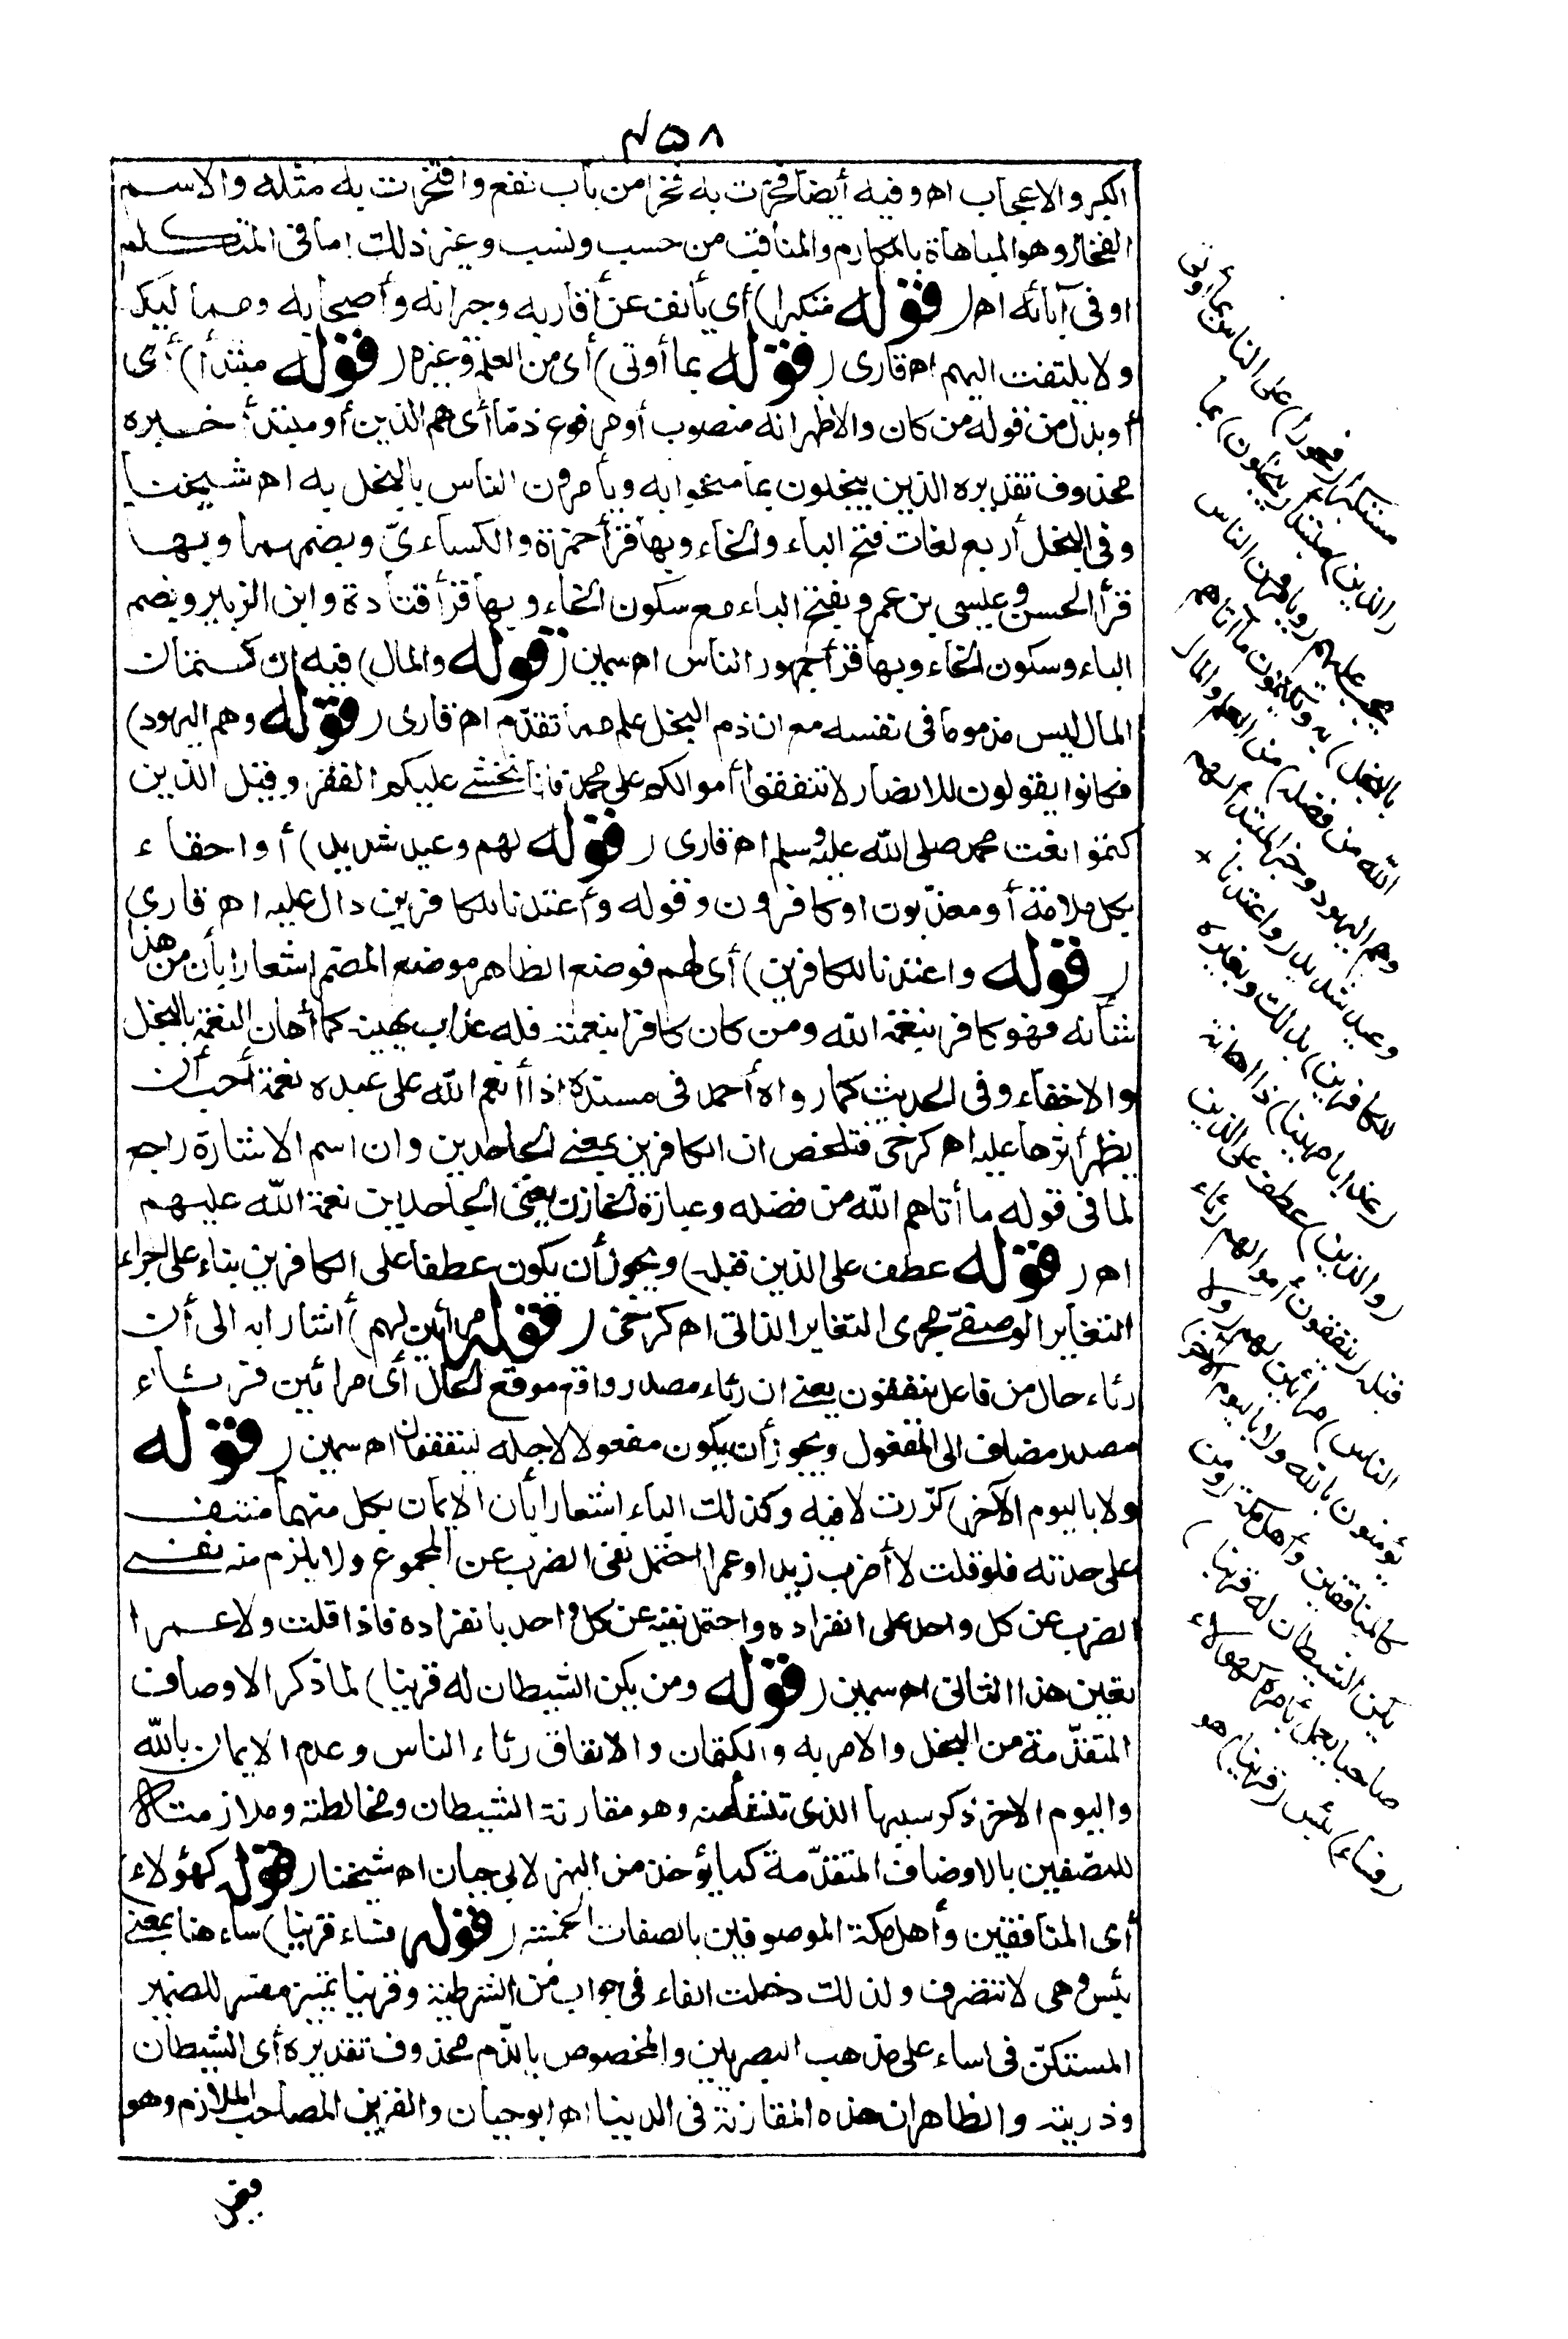 ٤٥٨
الكبر والاعجاب اه وفيه أيضا فخرت به فخرا من باب نفع وافتخرت به مثله والاسم
الفخار وهو المباهاة بالمكارم والمناقب من حسب ونسب وغير ذلك اما فى المتكلم
او فى آبائه اه (قوله متكبرا) أى يأنف عن أقاربه وجيرانه وأصحابه ومماليكه
ولا يلتفت اليهم اه قارى (قوله بما أوتى) أى من العلم وغيره (قوله مبتدأ) أى
أو بدل من قوله من كان والاظهر انه منصوب أو مرفوع ذما أى هم الذين أو مبتدأ خبره
محذوف تقديره الذين يبخلون بما منحوا به ويأمرون الناس بالبخل به اه شيخنا
وفى البخل أربع لغات فتح الباء والخاء وبها قرأ حمزة والكساءىّ وبضمهما وبها
قرأ الحسن وعيسى بن عمر وبفتح الباء مع سكون الخاء وبها قرأ قتادة وابن الزبير وبضم
الباء وسكون الخاء وبها قرأ جمهور الناس اه سمين (قوله والمال) فيه ان كتمان
المال ليس مذموما فى نفسه مع ان ذم البخل علم مما تقدّم اه قارى (قوله وهم اليهود)
فكانوا يقولون للانصار لا تنفقوا أموالكم على محمد فانا نخشى عليكم الفقر وقيل الذين
كتموا نعت محمد صلى الله عليه وسلم اه قارى (قوله لهم وعيد شديد) أو احقاء
بكل ملامة أو معذبون او كافرون وقوله وأعتدنا للكافرين دال عليه اه قارى
(قوله واعتدنا للكافرين) أى لهم فوضع الظاهر موضع المضمر اشعارا بأن من هذا
شأنه فهو كافر بنعمة الله ومن كان كافرا بنعمته فله عذاب يهينه كما أهان النعمة بالبخل
والاخفاء وفى الحديث كما رواه أحمد فى مسنده اذا أنعم الله على عبده نعمة أحب أن
يظهر أثرها عليه اه كرخى فتلخص ان الكافرين بمعنى الجاحدين وان اسم الاشارة راجع
لما فى قوله ما أتاهم الله من فضله وعبارة الخازن يعنى الجاحدين نعمة الله عليهم
اه (قوله عطف على الذين قبله) ويجوز أن يكون عطفا على الكافرين بناء على اجراء
التغاير الوصفىّ مجرى التغاير الذاتى اه كرخى (قوله مرائين لهم) أشار به الى أن
رئاء حال من فاعل ينفقون يعنى ان رئاء مصدر واقع موقع الحال أى مرائين فرئاء
مصدر مضاف الى المفعول ويجوز أن يكون مفعولا لاجله لينفقون اه سمين (قوله
ولا باليوم الآخر) كررت لا فيه وكذلك الباء اشعارا بأن الايمان بكل منهما منتف
على حدته فلو قلت لا أضرب زيدا وعمرا احتمل نفى الضرب عن المجموع ولا يلزم منه نفى
الضرب عن كل واحد على انفراده واحتمل نفيه عن كل واحد بانفراده فاذا قلت ولا عمرا
تعين هذا الثانى اه سمين (قوله ومن يكن الشيطان له قرينا) لما ذكر الاوصاف
المتقدّمة من البخل والامر به والكتمان والانفاق رئاء الناس وعدم الايمان بالله
واليوم الاخر ذكر سببها الذى تنشأ منه وهو مقارنة الشيطان ومخالطته وملازمته
للمتصفين بالاوصاف المتقدّمة كما يؤخذ من النهر لابى حيان اه شيخنا (قوله كهؤلاء)
أى المنافقين وأهل مكة الموصوفين بالصفات الخمسة (قوله فساء قرينا) ساء هنا بمعنى
بئس وهى لا تتصرف ولذلك دخلت الفاء فى جواب من الشرطية وقرينا تمييز مفسر للضمير
المستكنّ فى ساء على مذهب البصريين والمخصوص بالذم محذوف تقديره أى الشيطان
وذريته والظاهر ان هذه المقارنة فى الدنيا اه ابو حيان والقرين المصاحب الملازم وهو
متكبرا (فخورا) على الناس بما أوتى
(الذين) مبتدأ (يبخلون) بما
يجب عليهم (ويأمرون الناس
بالبخل) به (ويكتمون ما آتاهم
الله من فضله) من العلم والمال
وهم اليهود وخبر المبتدأ لهم
وعيد شديد (واعتدنا
للكافرين) بذلك وبغيره
(عذابا مهينا) ذا اهانة
(والذين) عطف على الذين
قبله (ينفقون أموالهم رئاء
الناس) مرائين لهم (ولا
يؤمنون بالله ولا باليوم الآخر)
كالمنافقين وأهل مكة (ومن
يكن الشيطان له قرينا)
صاحبا يعمل بأمره كهؤلاء
(فساء) بئس (قرينا) هو